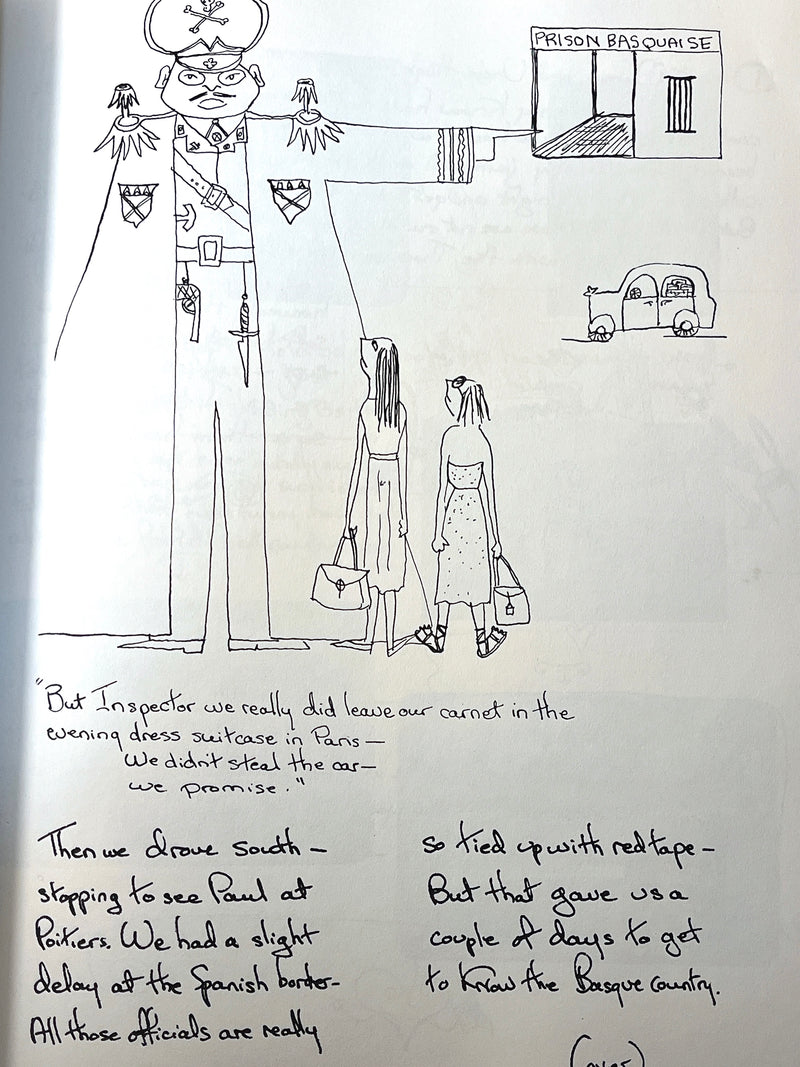 PRISON BASQUAISE
"But Inspector we really did leave our carnet in the
evening dress suitcase in Paris—
We didn't steal the car—
we promise."
Then we drove south —
stopping to see Paul at
Poitiers. We had a slight
delay at the Spanish border-
All those officials are really
so tied up with red tape —
But that gave us a
couple of days to get
to know the Basque Country.
(over)